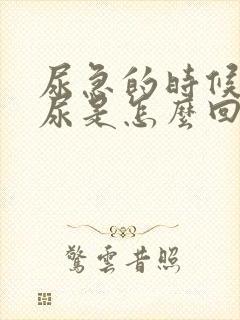 尿急的時候
尿是怎麼回
驚雲昔照